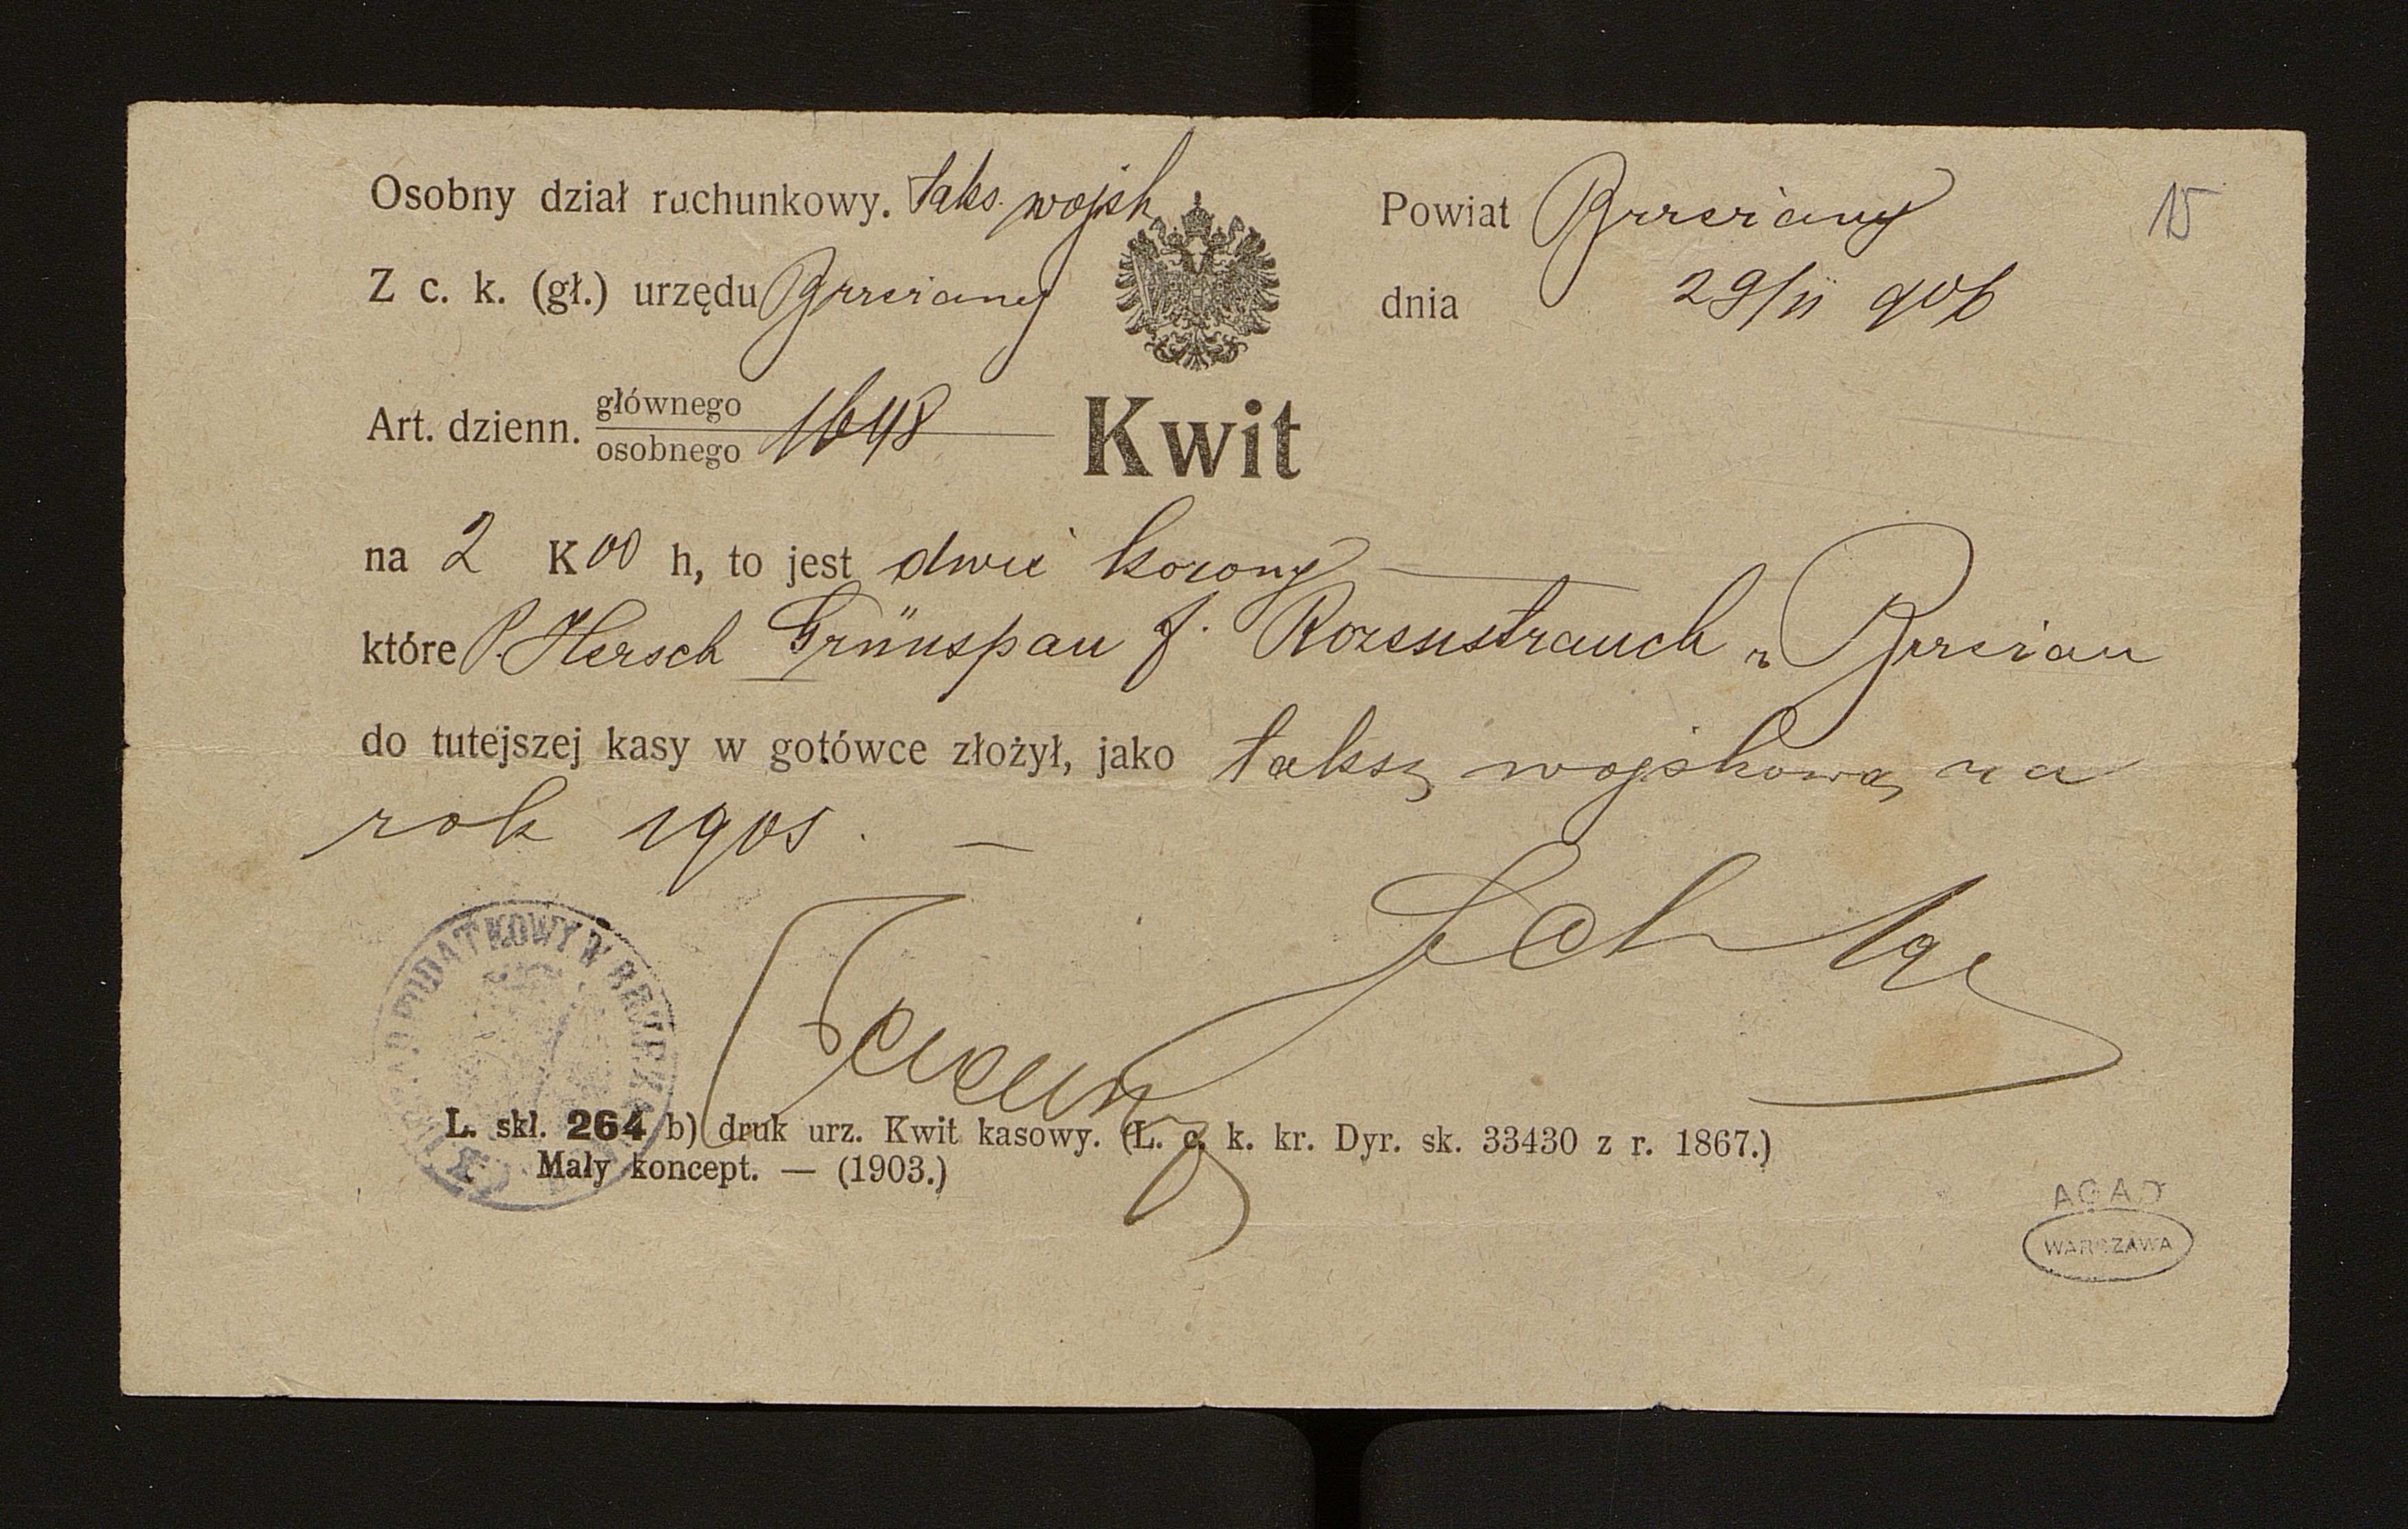 Osobny dział rachunkowy. taks. wojsk
Powiat Brzeżany
15
Z c. k. (gł.) urzędu Brzeżany
dnia 29/11 906
Art. dzienn. głównego
osobnego 1648
Kwit
na 2 K 00 h, to jest dwie korony —
które P. Hersch Grünspan f. Rozenstrauch z Brzeżan
do tutejszej kasy w gotówce złożył, jako taksę wojskową za
rok 1905. —
URZĄD PODATKOWY W
L. skł. 264 b) druk urz. Kwit kasowy. (L. c. k. kr. Dyr. sk. 33430 z r. 1867.)
Mały koncept. — (1903.)
AGAD
WARSZAWA